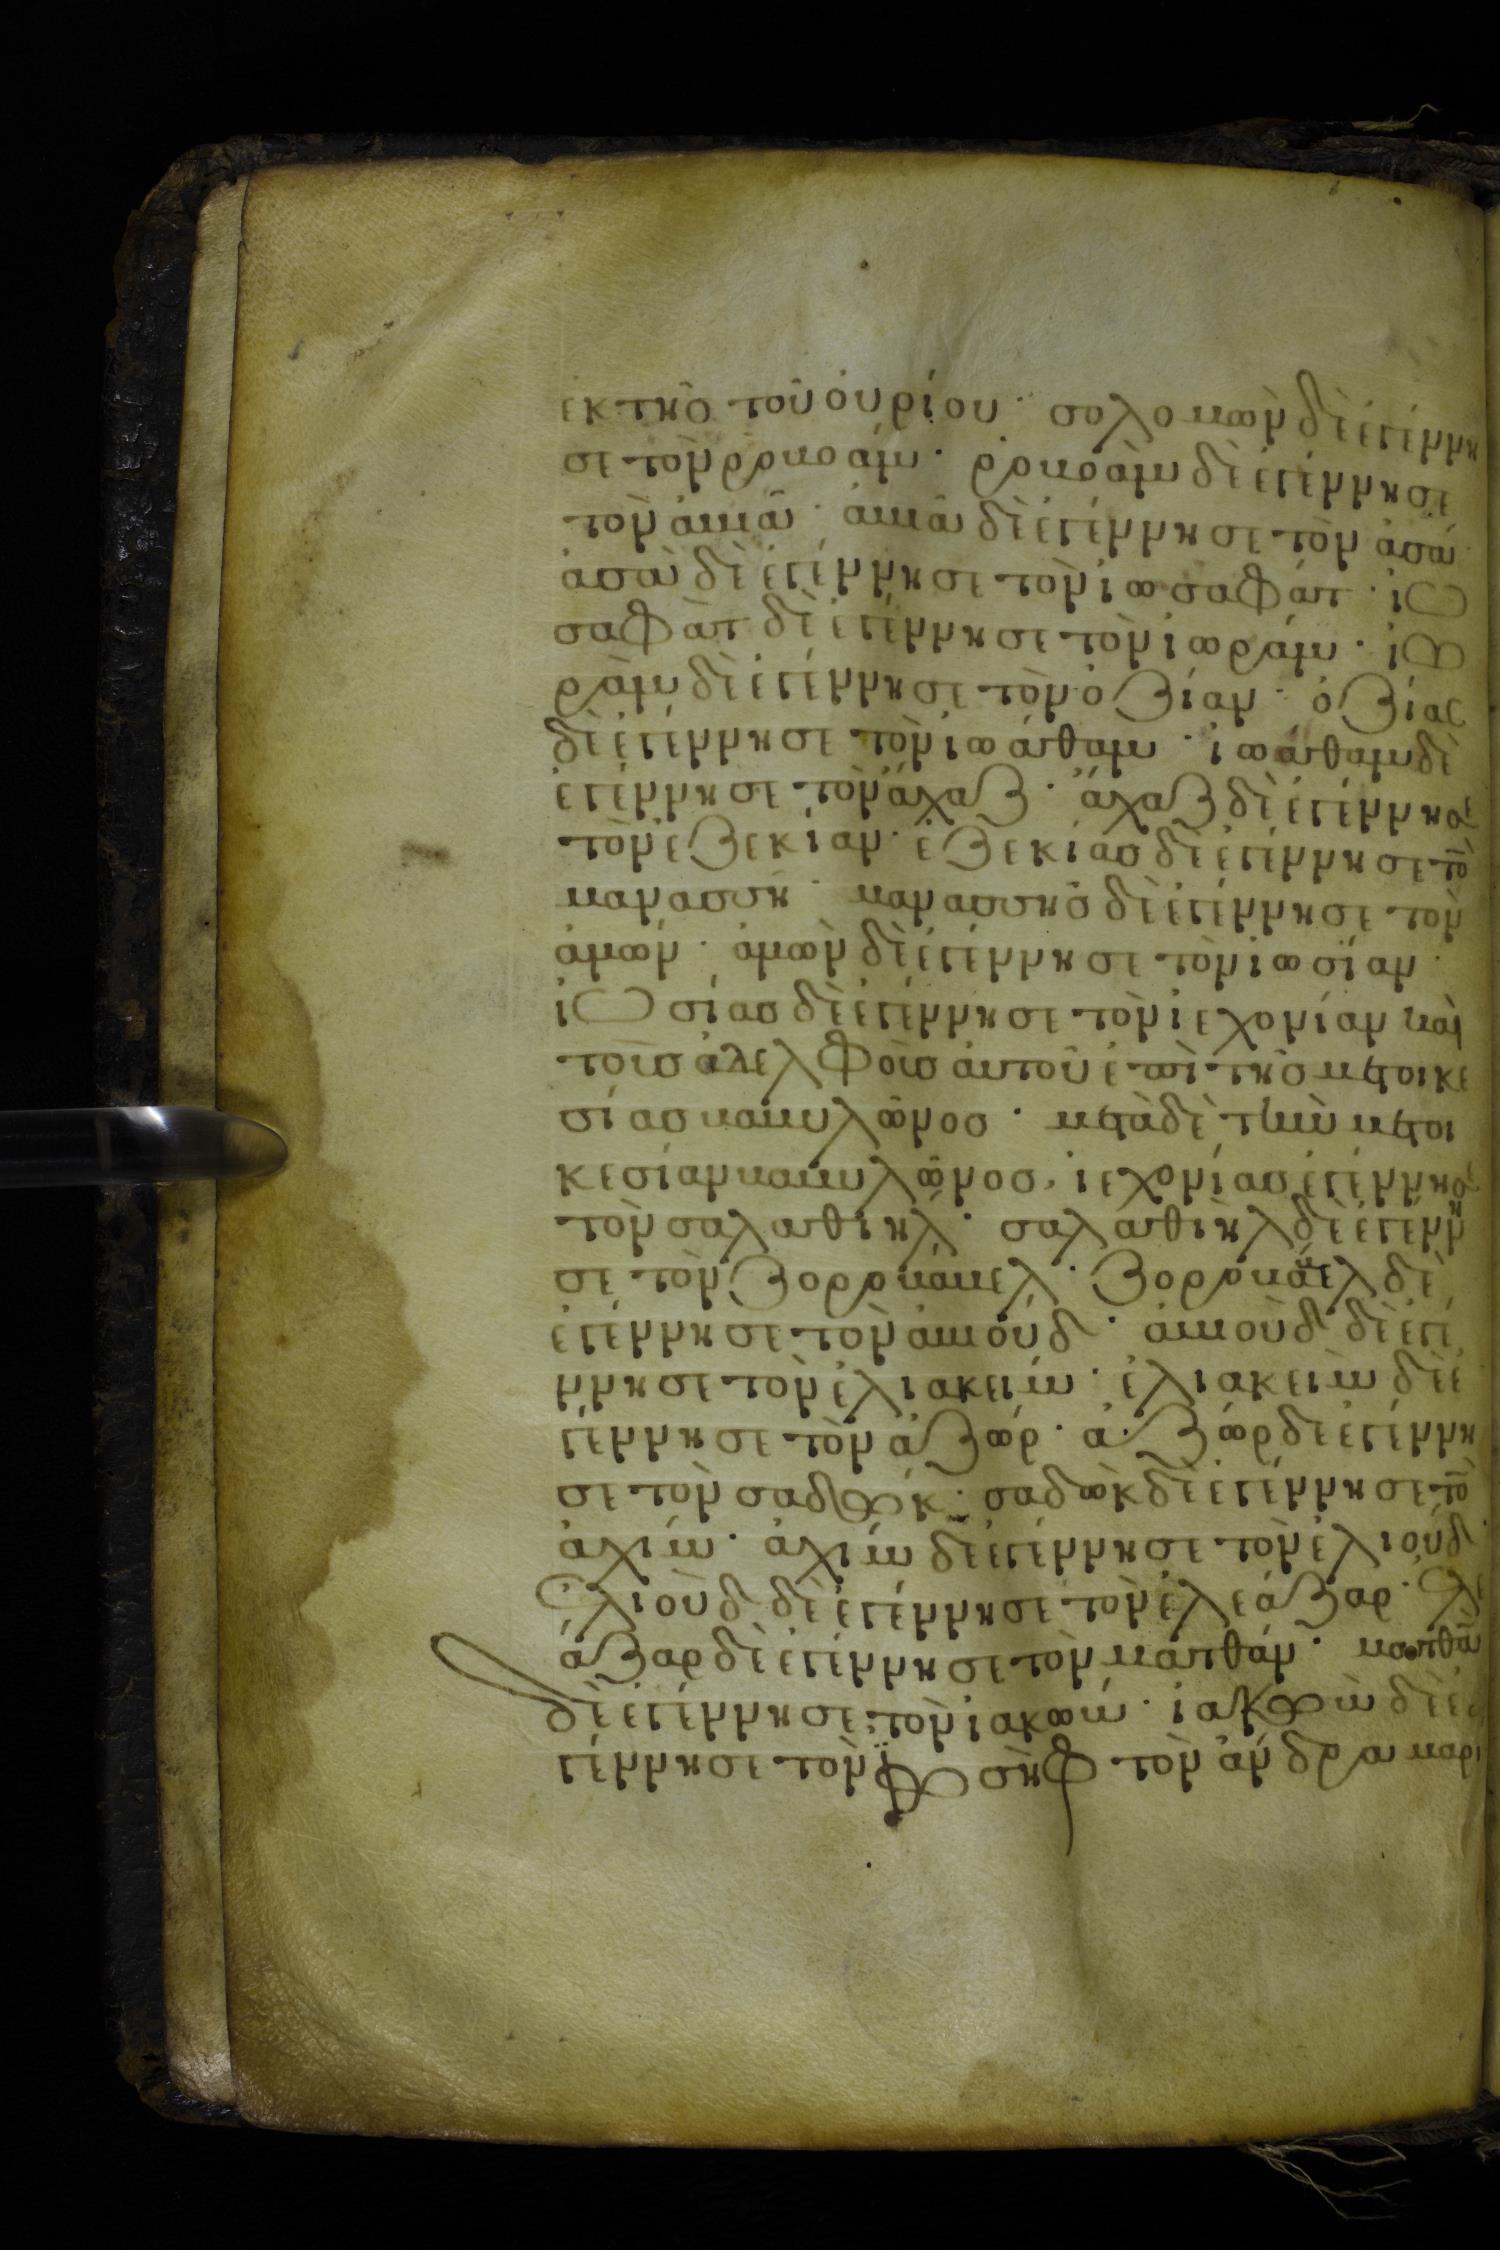 ἐκ τῆς τοῦ οὐρίου· σολομὼν δὲ ἐγέννη
σε τὸν ῥοβοάμ· ῥοβοὰμ δὲ ἐγέννησε
τὸν ἀβιᾶ· ἀβιᾶ δὲ ἐγέννησε τὸν ἀσά·
ἀσὰ δὲ ἐγέννησε τὸν ἰωσαφάτ· ἰω
σαφὰτ δὲ ἐγέννησε τὸν ἰωράμ· ἰω
ρὰμ δὲ ἐγέννησε τὸν ὀζίαν· ὀζίας
δὲ ἐγέννησε τὸν ἰωάθαμ· ἰωάθαμ δὲ
ἐγέννησε τὸν ἄχαζ· ἄχαζ δὲ ἐγέννησε
τὸν ἐζεκίαν· ἐζεκίας δὲ ἐγέννησε τὸν
μανασσῆ· μανασσῆς δὲ ἐγέννησε τὸν
ἀμών· ἀμὼν δὲ ἐγέννησε τὸν ἰωσίαν·
ἰωσίας δὲ ἐγέννησε τὸν ἰεχονίαν καὶ
τοὺς ἀδελφοὺς αὐτοῦ ἐπὶ τῆς μετοικε
σίας βαβυλῶνος· μετὰ δὲ τὴν μετοι
κεσίαν βαβυλῶνος· ἰεχονίας ἐγέννησε
τὸν σαλαθιήλ· σαλαθιὴλ δὲ ἐγέννη
σε τὸν ζοροβάβελ· ζοροβάβελ δὲ
ἐγέννησε τὸν ἀβιούδ· ἀβιοὺδ δὲ ἐγέ
ννησε τὸν ἐλιακείμ· ἐλιακεὶμ δὲ ἐ
γέννησε τὸν ἀζώρ· ἀζὼρ δὲ ἐγέννη
σε τὸν σαδώκ· σαδὼκ δὲ ἐγέννησε τὸν
ἀχίμ· ἀχὶμ δὲ ἐγέννησε τὸν ἐλιούδ·
ἐλιοὺδ δὲ ἐγέννησε τὸν ἐλεάζαρ· ἐλε
άζαρ δὲ ἐγέννησε τὸν ματθάν· ματθὰν
δὲ ἐγέννησε τὸν ἰακώβ· ἰακὼβ δὲ ἐ
γέννησε τὸν ἰωσὴφ τὸν ἄνδρα μαρί